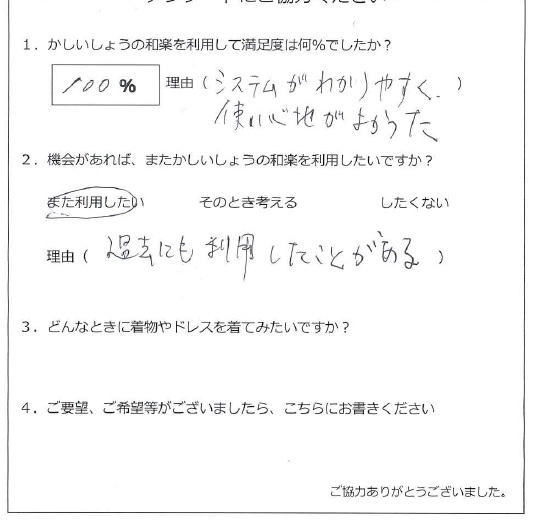 アンケートにご協力ください
1．かしいしょうの和楽を利用して満足度は何%でしたか？
100 % 理由（システムがわかりやすく、）
使い心地がよかった
2．機会があれば、またかしいしょうの和楽を利用したいですか？
また利用したい そのとき考える したくない
理由（ 過去にも利用したことがある ）
3．どんなときに着物やドレスを着てみたいですか？
4．ご要望、ご希望等がございましたら、こちらにお書きください
ご協力ありがとうございました。